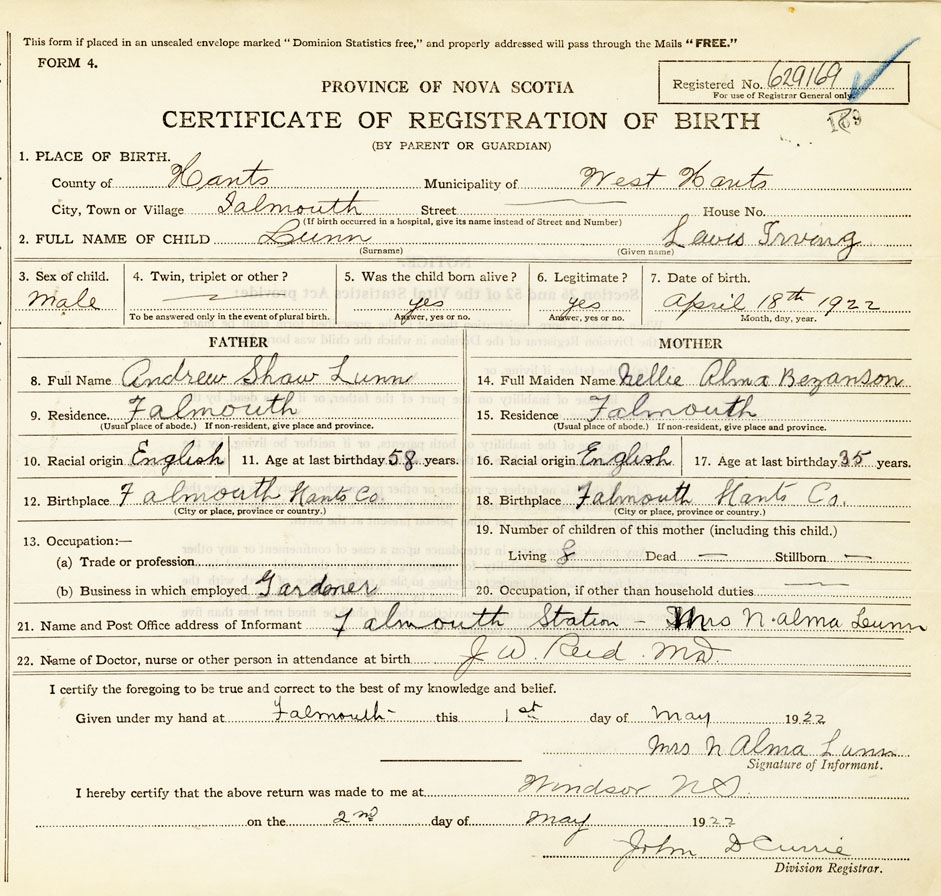 This form if placed in an unsealed envelope marked "Dominion Statistics free," and properly addressed will pass through the Mails "FREE."
FORM 4.
Registered No. 629169
For use of Registrar General only.
PROVINCE OF NOVA SCOTIA
189
CERTIFICATE OF REGISTRATION OF BIRTH
(BY PARENT OR GUARDIAN)
1. PLACE OF BIRTH.
County of Hants Municipality of West Hants
City, Town or Village Falmouth Street House No.
(If birth occurred in a hospital, give its name instead of Street and Number)
2. FULL NAME OF CHILD Lunn Lewis Irving
(Surname) (Given name)
3. Sex of child. 4. Twin, triplet or other? 5. Was the child born alive? 6. Legitimate? 7. Date of birth.
Male — yes yes April 18th 1922
To be answered only in the event of plural birth. Answer, yes or no. Answer, yes or no. Month, day, year.
FATHER MOTHER
8. Full Name Andrew Shaw Lunn 14. Full Maiden Name Nellie Alma Bezanson
9. Residence Falmouth 15. Residence Falmouth
(Usual place of abode.) If non-resident, give place and province. (Usual place of abode.) If non-resident, give place and province.
10. Racial origin English 11. Age at last birthday 58 years. 16. Racial origin English 17. Age at last birthday 35 years.
12. Birthplace Falmouth Hants Co. 18. Birthplace Falmouth Hants Co.
(City or place, province or country.) (City or place, province or country.)
13. Occupation:— 19. Number of children of this mother (including this child.)
(a) Trade or profession Living 8 Dead — Stillborn —
(b) Business in which employed Gardener 20. Occupation, if other than household duties —
21. Name and Post Office address of Informant Falmouth Station - Mrs N. Alma Lunn
22. Name of Doctor, nurse or other person in attendance at birth J. W. Reid MD.
I certify the foregoing to be true and correct to the best of my knowledge and belief.
Given under my hand at Falmouth this 1st day of May 1922
Mrs N Alma Lunn
Signature of Informant.
I hereby certify that the above return was made to me at Windsor NS.
on the 2nd day of May 1922
John D Currie
Division Registrar.